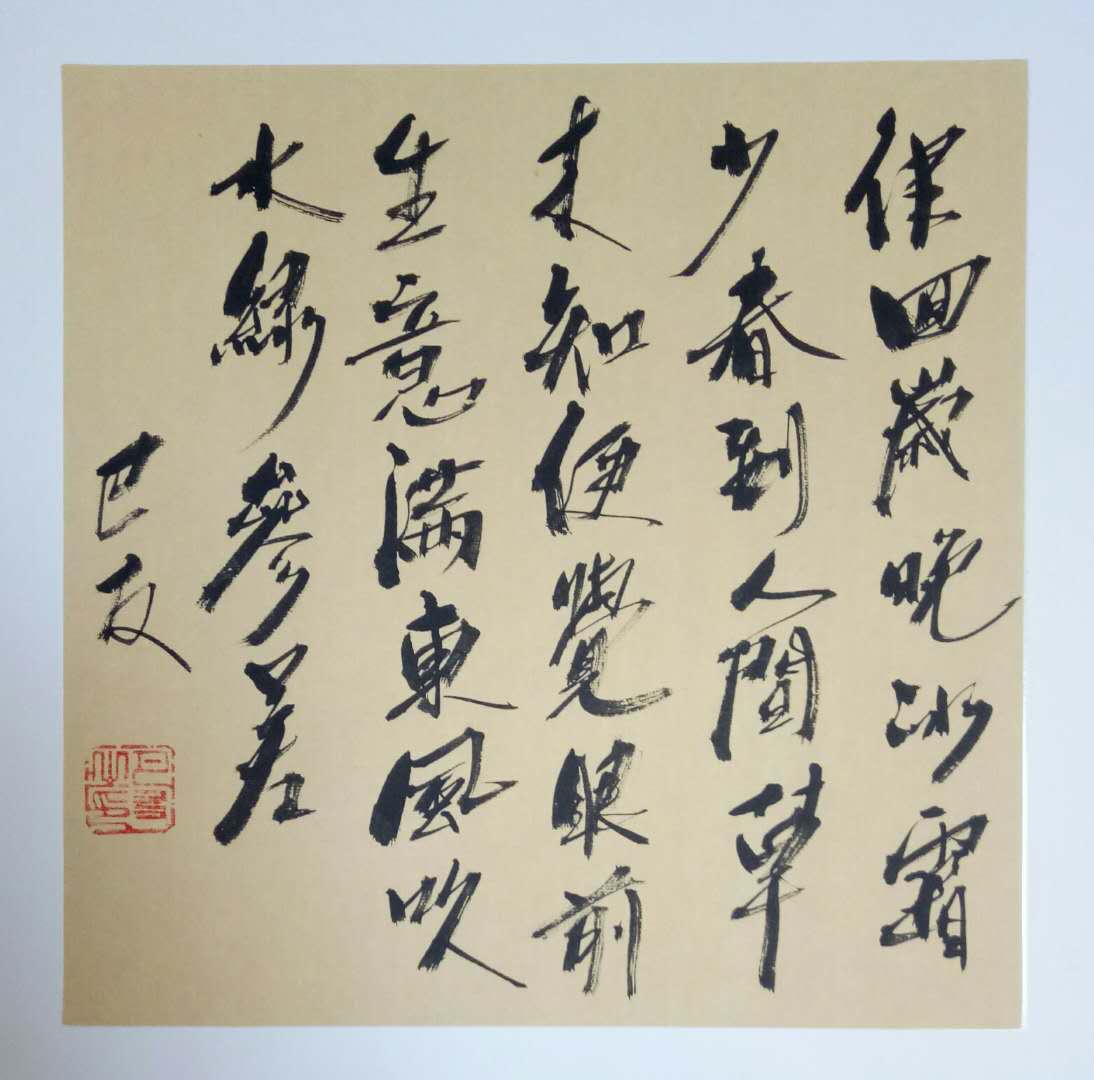 律回歲晚冰霜
少春到人間草
木知便覺眼前
生意滿東風吹
水綠參差
巴友